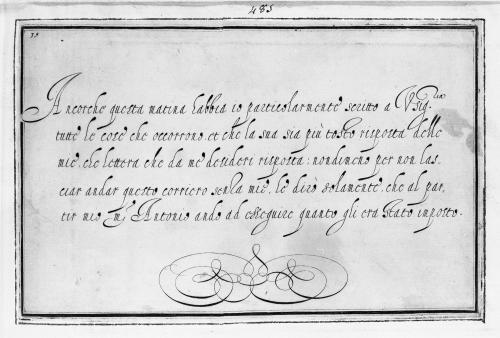 485
Ancorche questa matina habbia io particolarmente scritto a V. Sig.ria
tutte le cose che occorrono, et che la sua sia più tosto risposta delle
mie, che lettera che da me desideri risposta: nondimeno per non las,
ciar andar questo corriero senza mie, le dirò solamente, che al par,
tir mio, Antonio ando ad esseguire quanto gli era stato imposto.